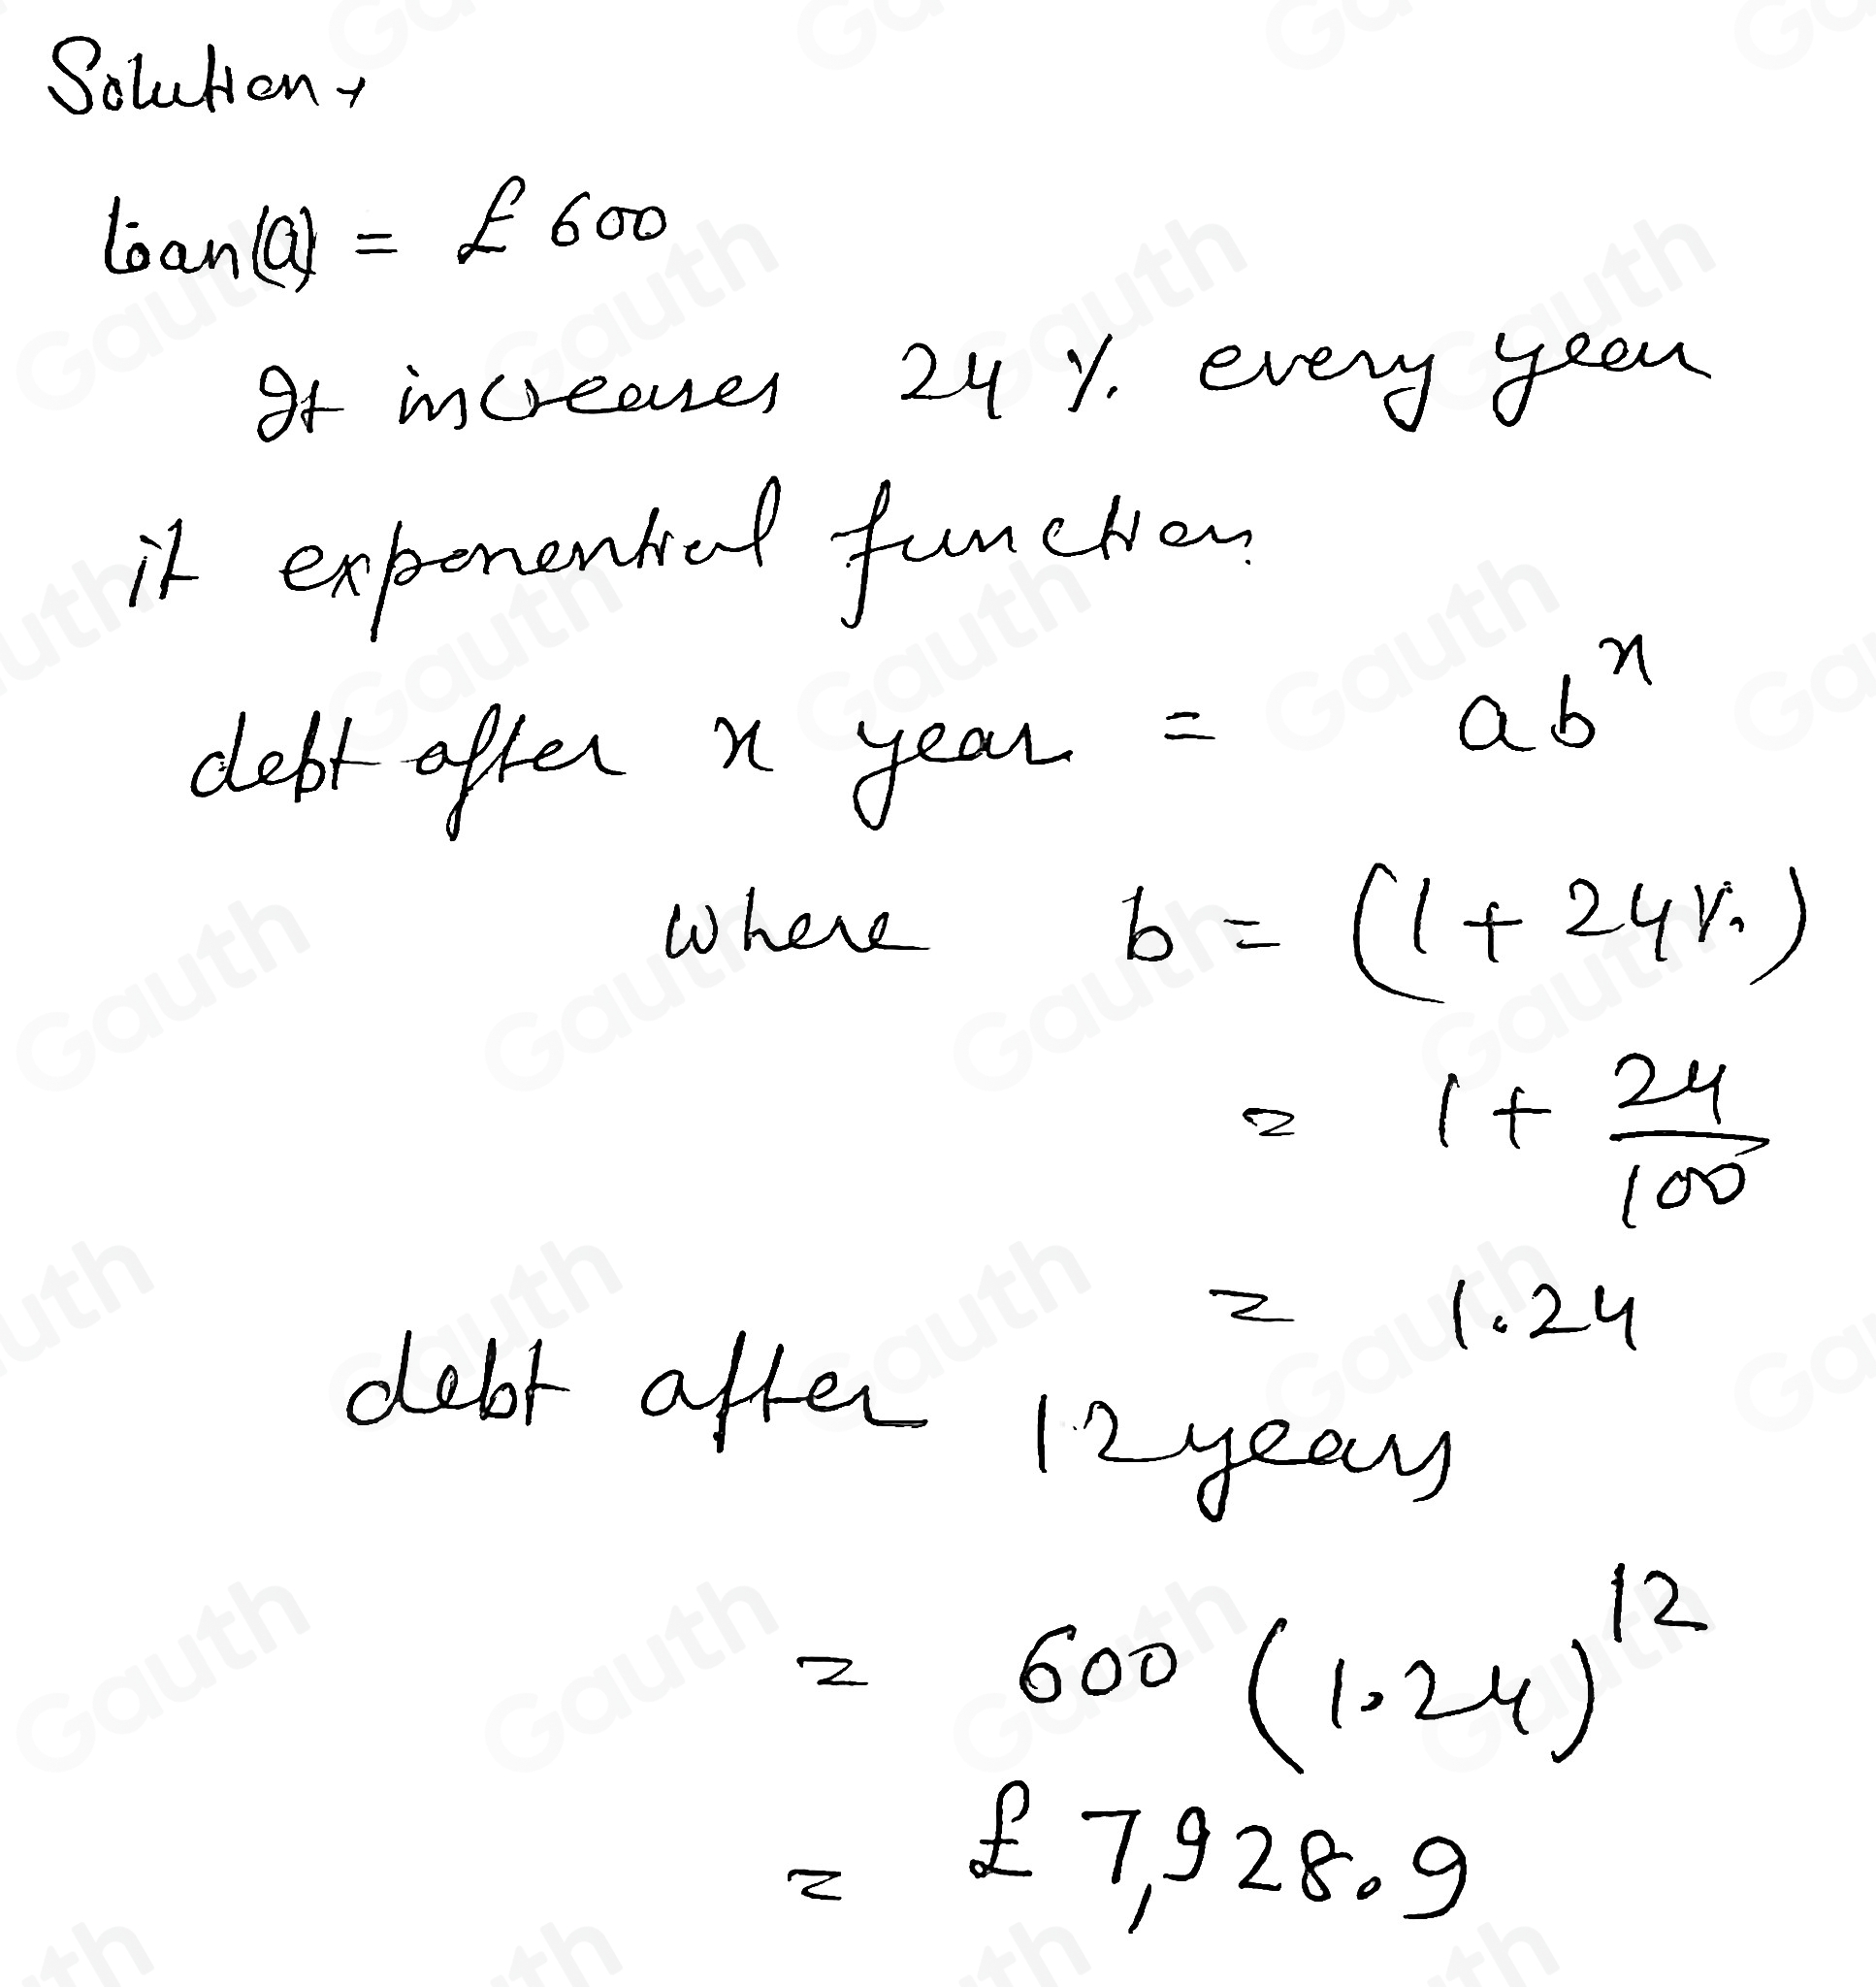 Solution,
loan(a) = £ 600
It increases 24 %. every year
it exponential function
debt after x year = ab^x
where b = (1 + 24%.)
= 1 + 24/100
= 1.24
debt after 12 years
= 600 (1.24)^12
= £ 7,928.9